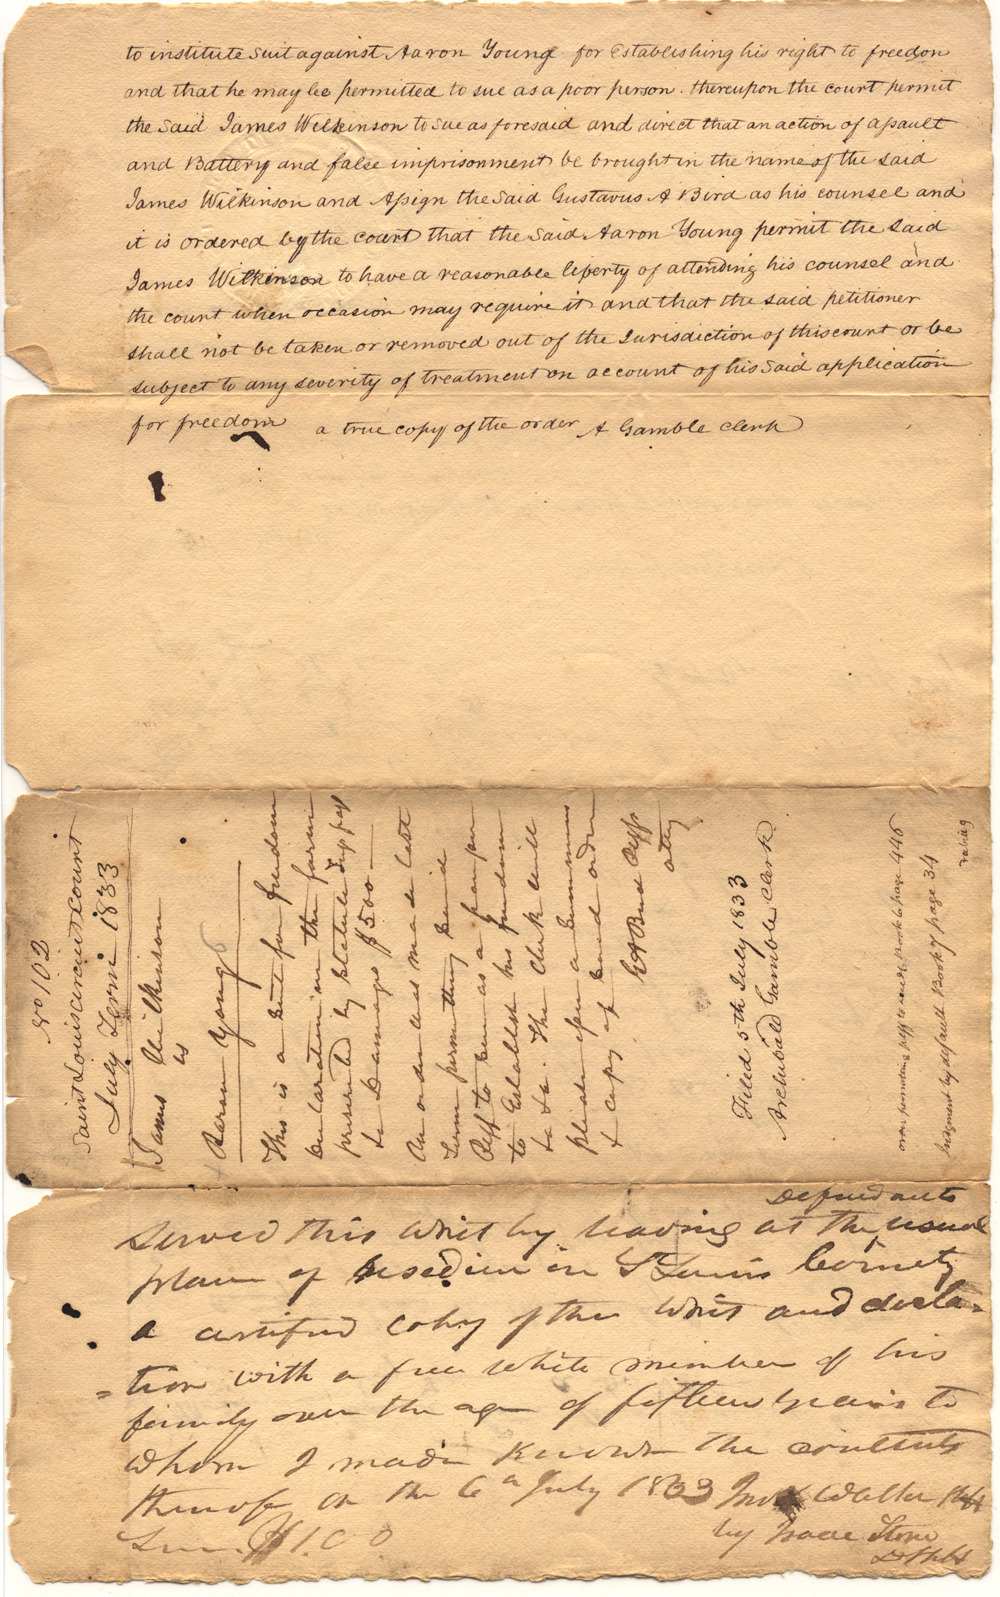 to institute suit against Aaron Young for Establishing his right to freedom
and that he may be permitted to sue as a poor person. thereupon the court permit
the said James Wilkinson to sue as foresaid and direct that an action of assault
and Battery and false imprisonment be brought in the name of the said
James Wilkinson and Assign the said Gustavus A Bird as his counsel and
it is ordered by the court that the said Aaron Young permit the said
James Wilkinson to have a reasonable liberty of attending his counsel and
the court when occasion may require it and that the said petitioner
shall not be taken or removed out of the Jurisdiction of this court or be
subject to any severity of treatment on account of his said application
for freedom a true copy of the order A Gamble clerk
No 102
Saint Louis circuit court
July Term 1833
James Wilkinson
vs
Aaron Young
This is a suit for freedom
Declaration in the form
prescribed by statute
Damages $500
An order was made last
Term permitting said
Plff to sue as a poor person
to Establish his freedom
&c &c. The Clerk will
please issue a summons
& copy of said order
G A Bird Plffs
atty
Filed 5th July 1833
Archibald Gamble Clerk
order permitting plff to sue &c Book 6 page 446
Judgment by default Book 7 page 34
Defendants
Served this writ by leaving at the usual
place of residence in St Louis County
a certified copy of the writ and decla-
=tion with a free white member of his
family over the age of fifteen years to
whom I made known the contents
thereof on the 6th July 1833 Walker Shff
by Isaac Stone
D Shff